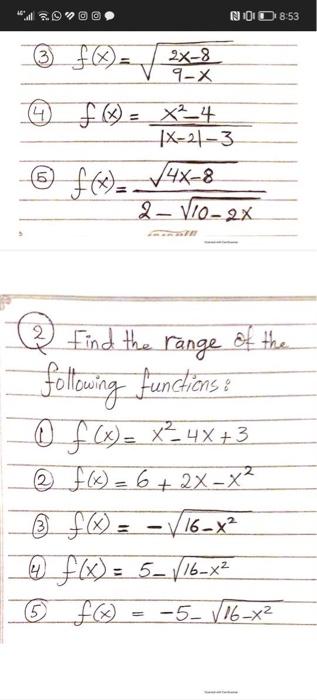 4G 8:53
③ f(x) = √((2x-8)/(9-x))
④ f(x) = (x²-4)/(|x-2|-3)
⑤ f(x) = √(4x-8)/(2-√(10-2x))
② Find the range of the
following functions:
① f(x) = x²-4x+3
② f(x) = 6+2x-x²
③ f(x) = -√(16-x²)
④ f(x) = 5-√(16-x²)
⑤ f(x) = -5-√(16-x²)